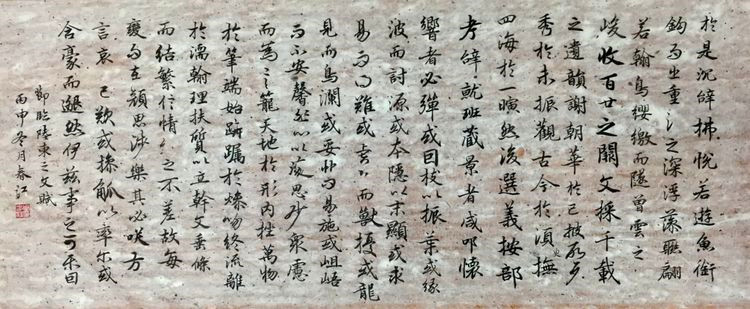 於是沉辭拂悅若遊魚銜
鈎而出重之深浮藻聯翩
若翰鳥纓繳而墜曾雲之
峻收百世之闕文採千載
之遺韻謝朝華於已披夕
秀於未振觀古今於須臾撫
四海於一瞬然後選義按部
考辭就班藏景者咸叩懷
響者必彈或因枝以振葉或緣
波而討源或本隱以末顯或求
易而得難或而獸擾或龍
見而鳥瀾或妥怗而易施或岨峿
而不安罄心以凝思眇衆慮
而為言籠天地於形內挫萬物
於筆端始躑躅於燥吻終流離
於濡翰理扶質以立幹文垂條
而結繁信情之不差故每
變而在顏思涉樂其必咲方
言哀已歎或操觚以率尓或
含豪而邈然伊茲事之可樂固
節臨陸柬之文賦
丙申冬月春江